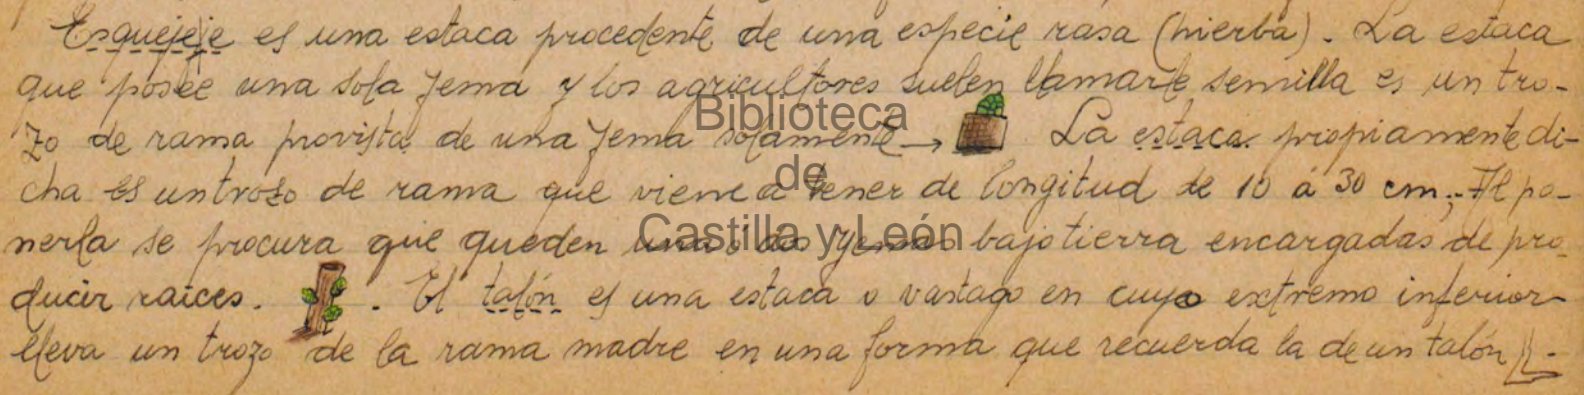 Esquejeje es una estaca procedente de una especie rasa (hierba). La estaca
que posee una sola jema y los agricultores suelen llamarle semilla es un tro-
zo de rama provista de una jema solamente → La estaca propiamente di-
cha es un trozo de rama que viene a tener de longitud de 10 á 30 cm; Al po-
nerla se procura que queden una ó dos yemas bajo tierra encargadas de pro-
ducir raices. . El talón es una estaca o vastago en cuyo extremo inferior
lleva un trozo de la rama madre en una forma que recuerda la de un talón .-
Biblioteca
de
Castilla y León